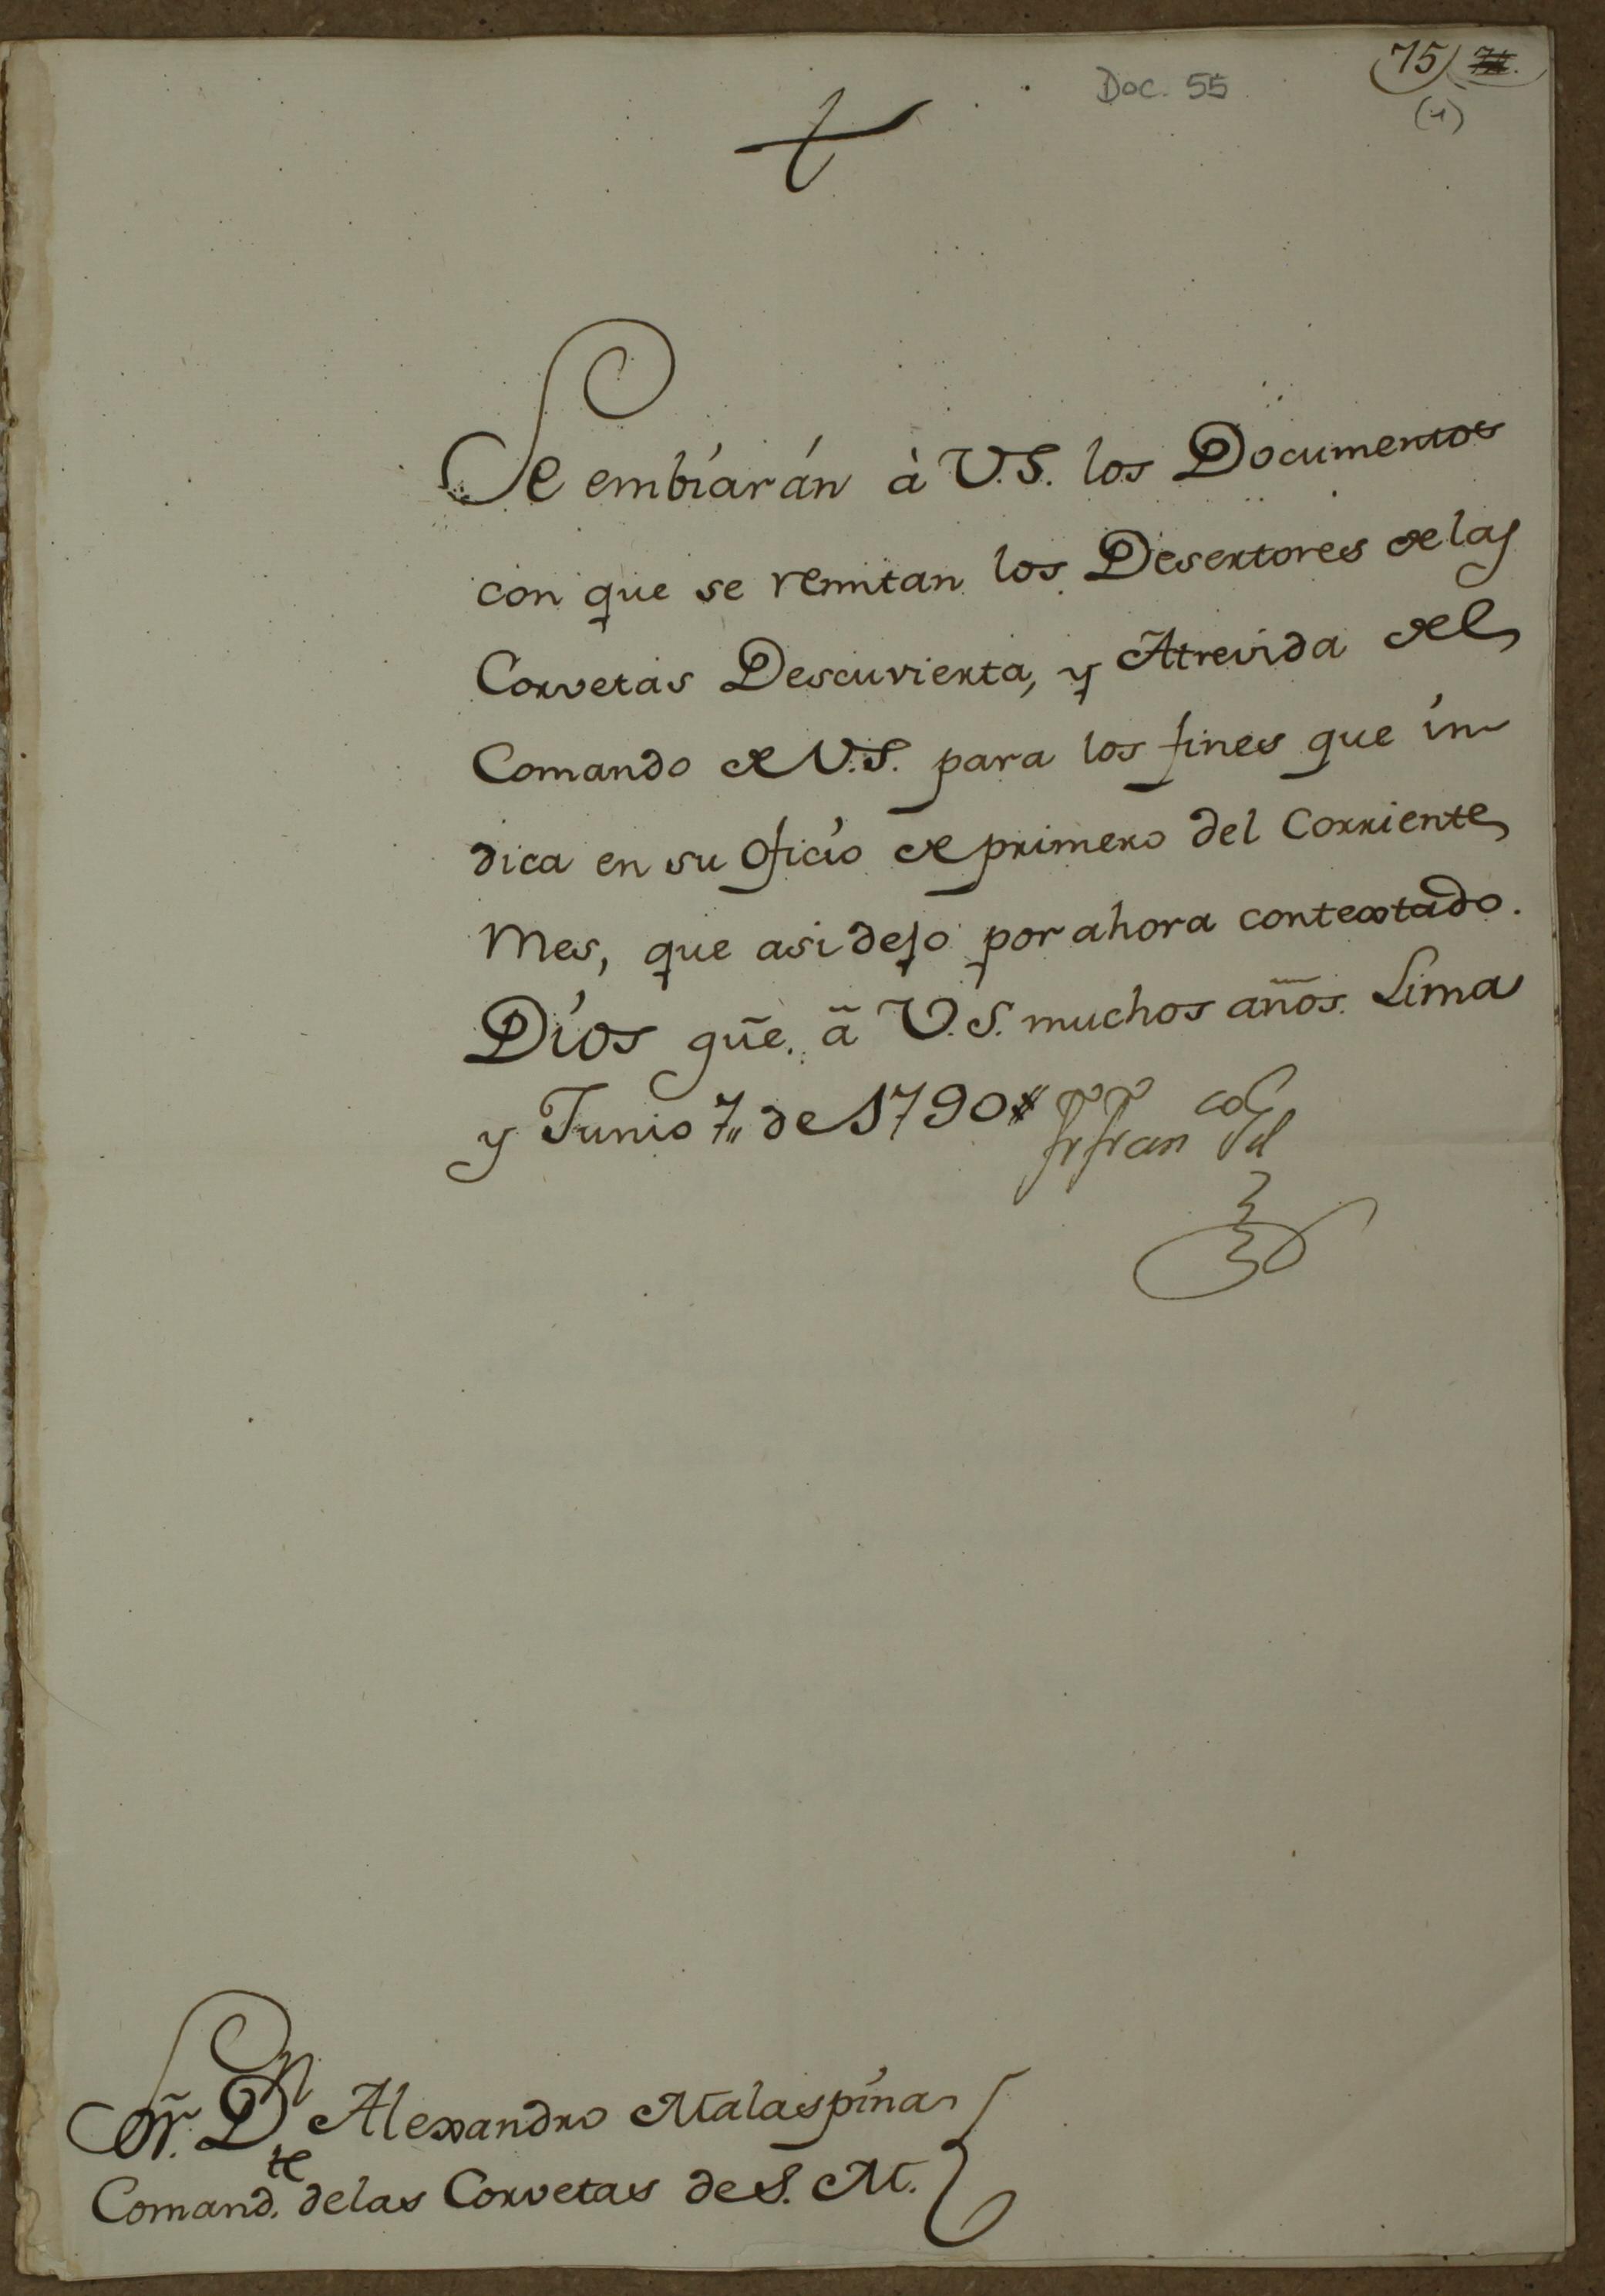 Doc. 55
75) 
(1)
Se embiarán à V.S. los Documentos
con que se remitan los Desertores de las
Corvetas Descuvierta, y Atrevida del
Comando de V.S. para los fines que in
dica en su Oficio de primero del Corriente
Mes, que asi dejo por ahora contextado.
Dios gũe. ã V.S. muchos años. Lima
y Junio 7,, de 1790
frfran Gil
Sr. Dn Alexandro Malaspina
Comandte. de las Corvetas de S. M.